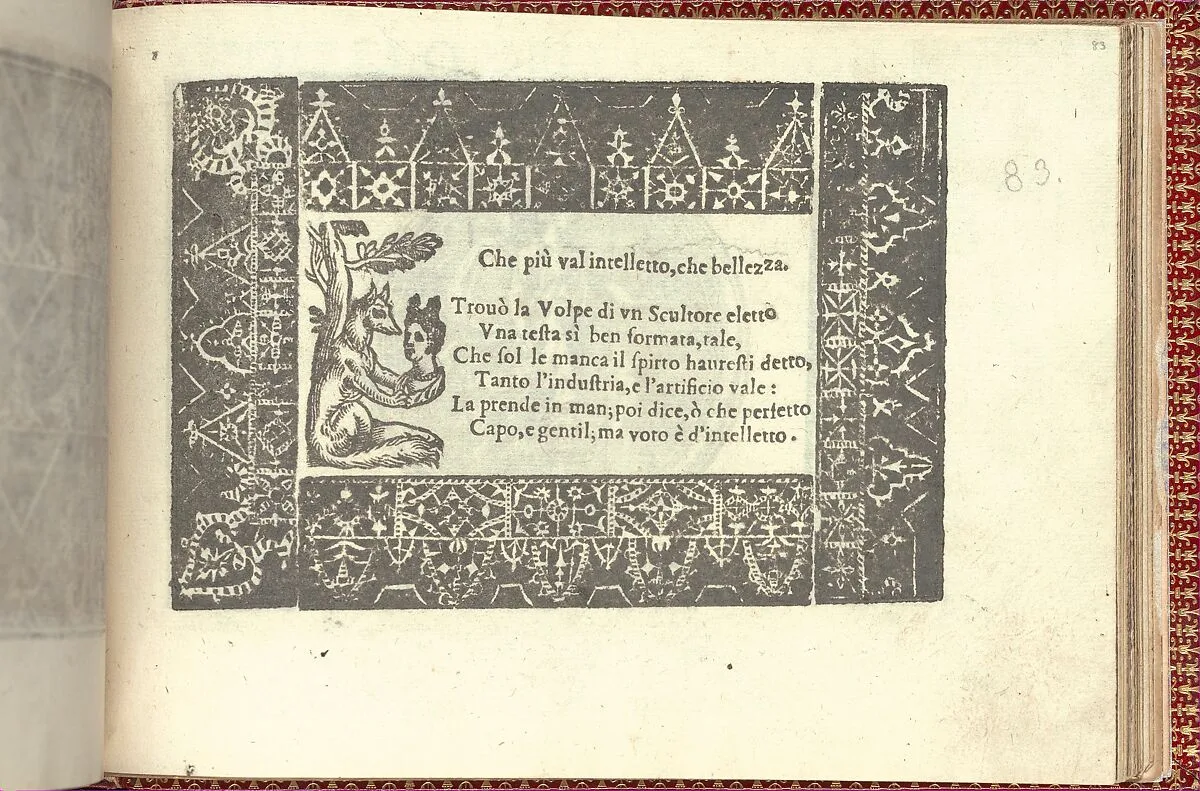 83
83.
Che più val intelletto, che bellezza.
Trouò la Volpe di vn Scultore eletto
Vna testa sì ben formata, tale,
Che sol le manca il spirto hauresti detto,
Tanto l'industria, e l'artificio vale:
La prende in man; poi dice, ò che perfetto
Capo, e gentil; ma voto è d'intelletto.